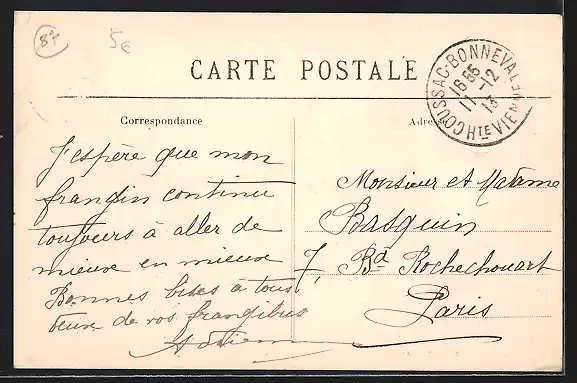 87
5€
CARTE POSTALE
COUSSAC-BONNEVAL
HTE VIENNE
16 55
11 - 12
13
Correspondance
Adresse
J'espère que mon
frangin continu
toujours à aller de
mieux en mieux
Bonnes bises à tous
deux de vos frangibus
Monsieur et Madame
Basquin
7, Bd Rochechouart
Paris